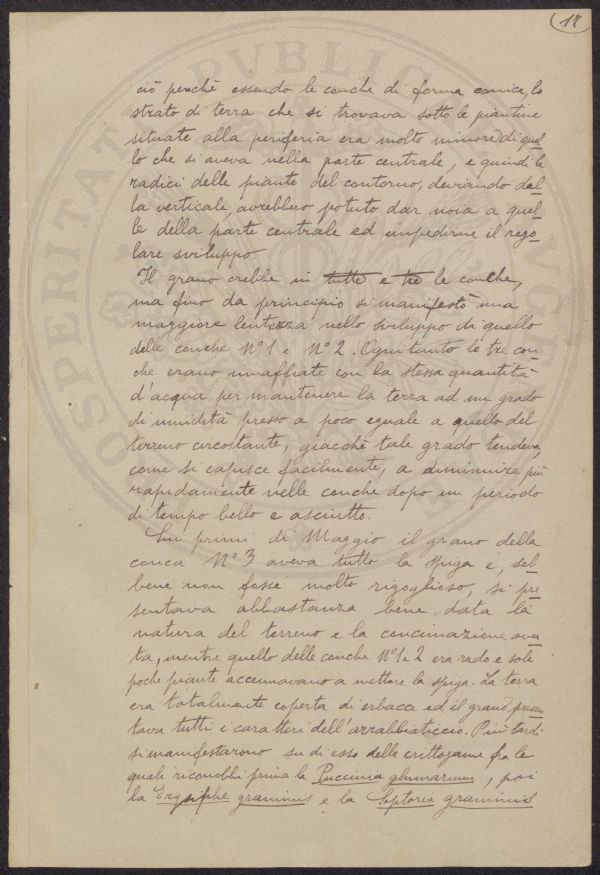 17
ciò perchè essendo le conche di forma conica, lo
strato di terra che si trovava sotto le piantine
situate alla periferia era molto minore di quel
lo che si aveva nella parte centrale, e quindi le
radici delle piante del contorno, deviando dal
la verticale, avrebbero potuto dar noia a quel
le della parte centrale ed impedirne il rego
lare sviluppo.
Il grano crebbe in tutte e tre le conche,
ma fino da principio si manifestò una
maggiore lentezza nello sviluppo di quello
delle conche Nº1 e Nº2. Ogni tanto le tre con
che erano innaffiate con la stessa quantità
d'acqua per mantenere la terra ad un grado
di umidità presso a poco eguale a quello del
terreno circostante, giacchè tale grado tendeva,
come si capisce facilmente, a diminuire più
rapidamente nelle conche dopo un periodo
di tempo bello e asciutto.
Sui primi di Maggio il grano della
conca Nº3 aveva tutto la spiga e, seb
bene non fosse molto rigoglioso, si pre
sentava abbastanza bene, data la
natura del terreno e la concimazione avu
ta, mentre quello delle conche Nº1 e 2 era rado e sole
poche piante accennavano a mettere la spiga. La terra
era totalmente coperta di erbacce ed il grano presen
tava tutti i caratteri dell'arrabbiaticcio. Più tardi
si manifestarono su di esso delle crittogame fra le
quali riconobbi prima la Puccinia glumarum, poi
la Erysiphe graminis e la Septoria graminis
PVBLIC